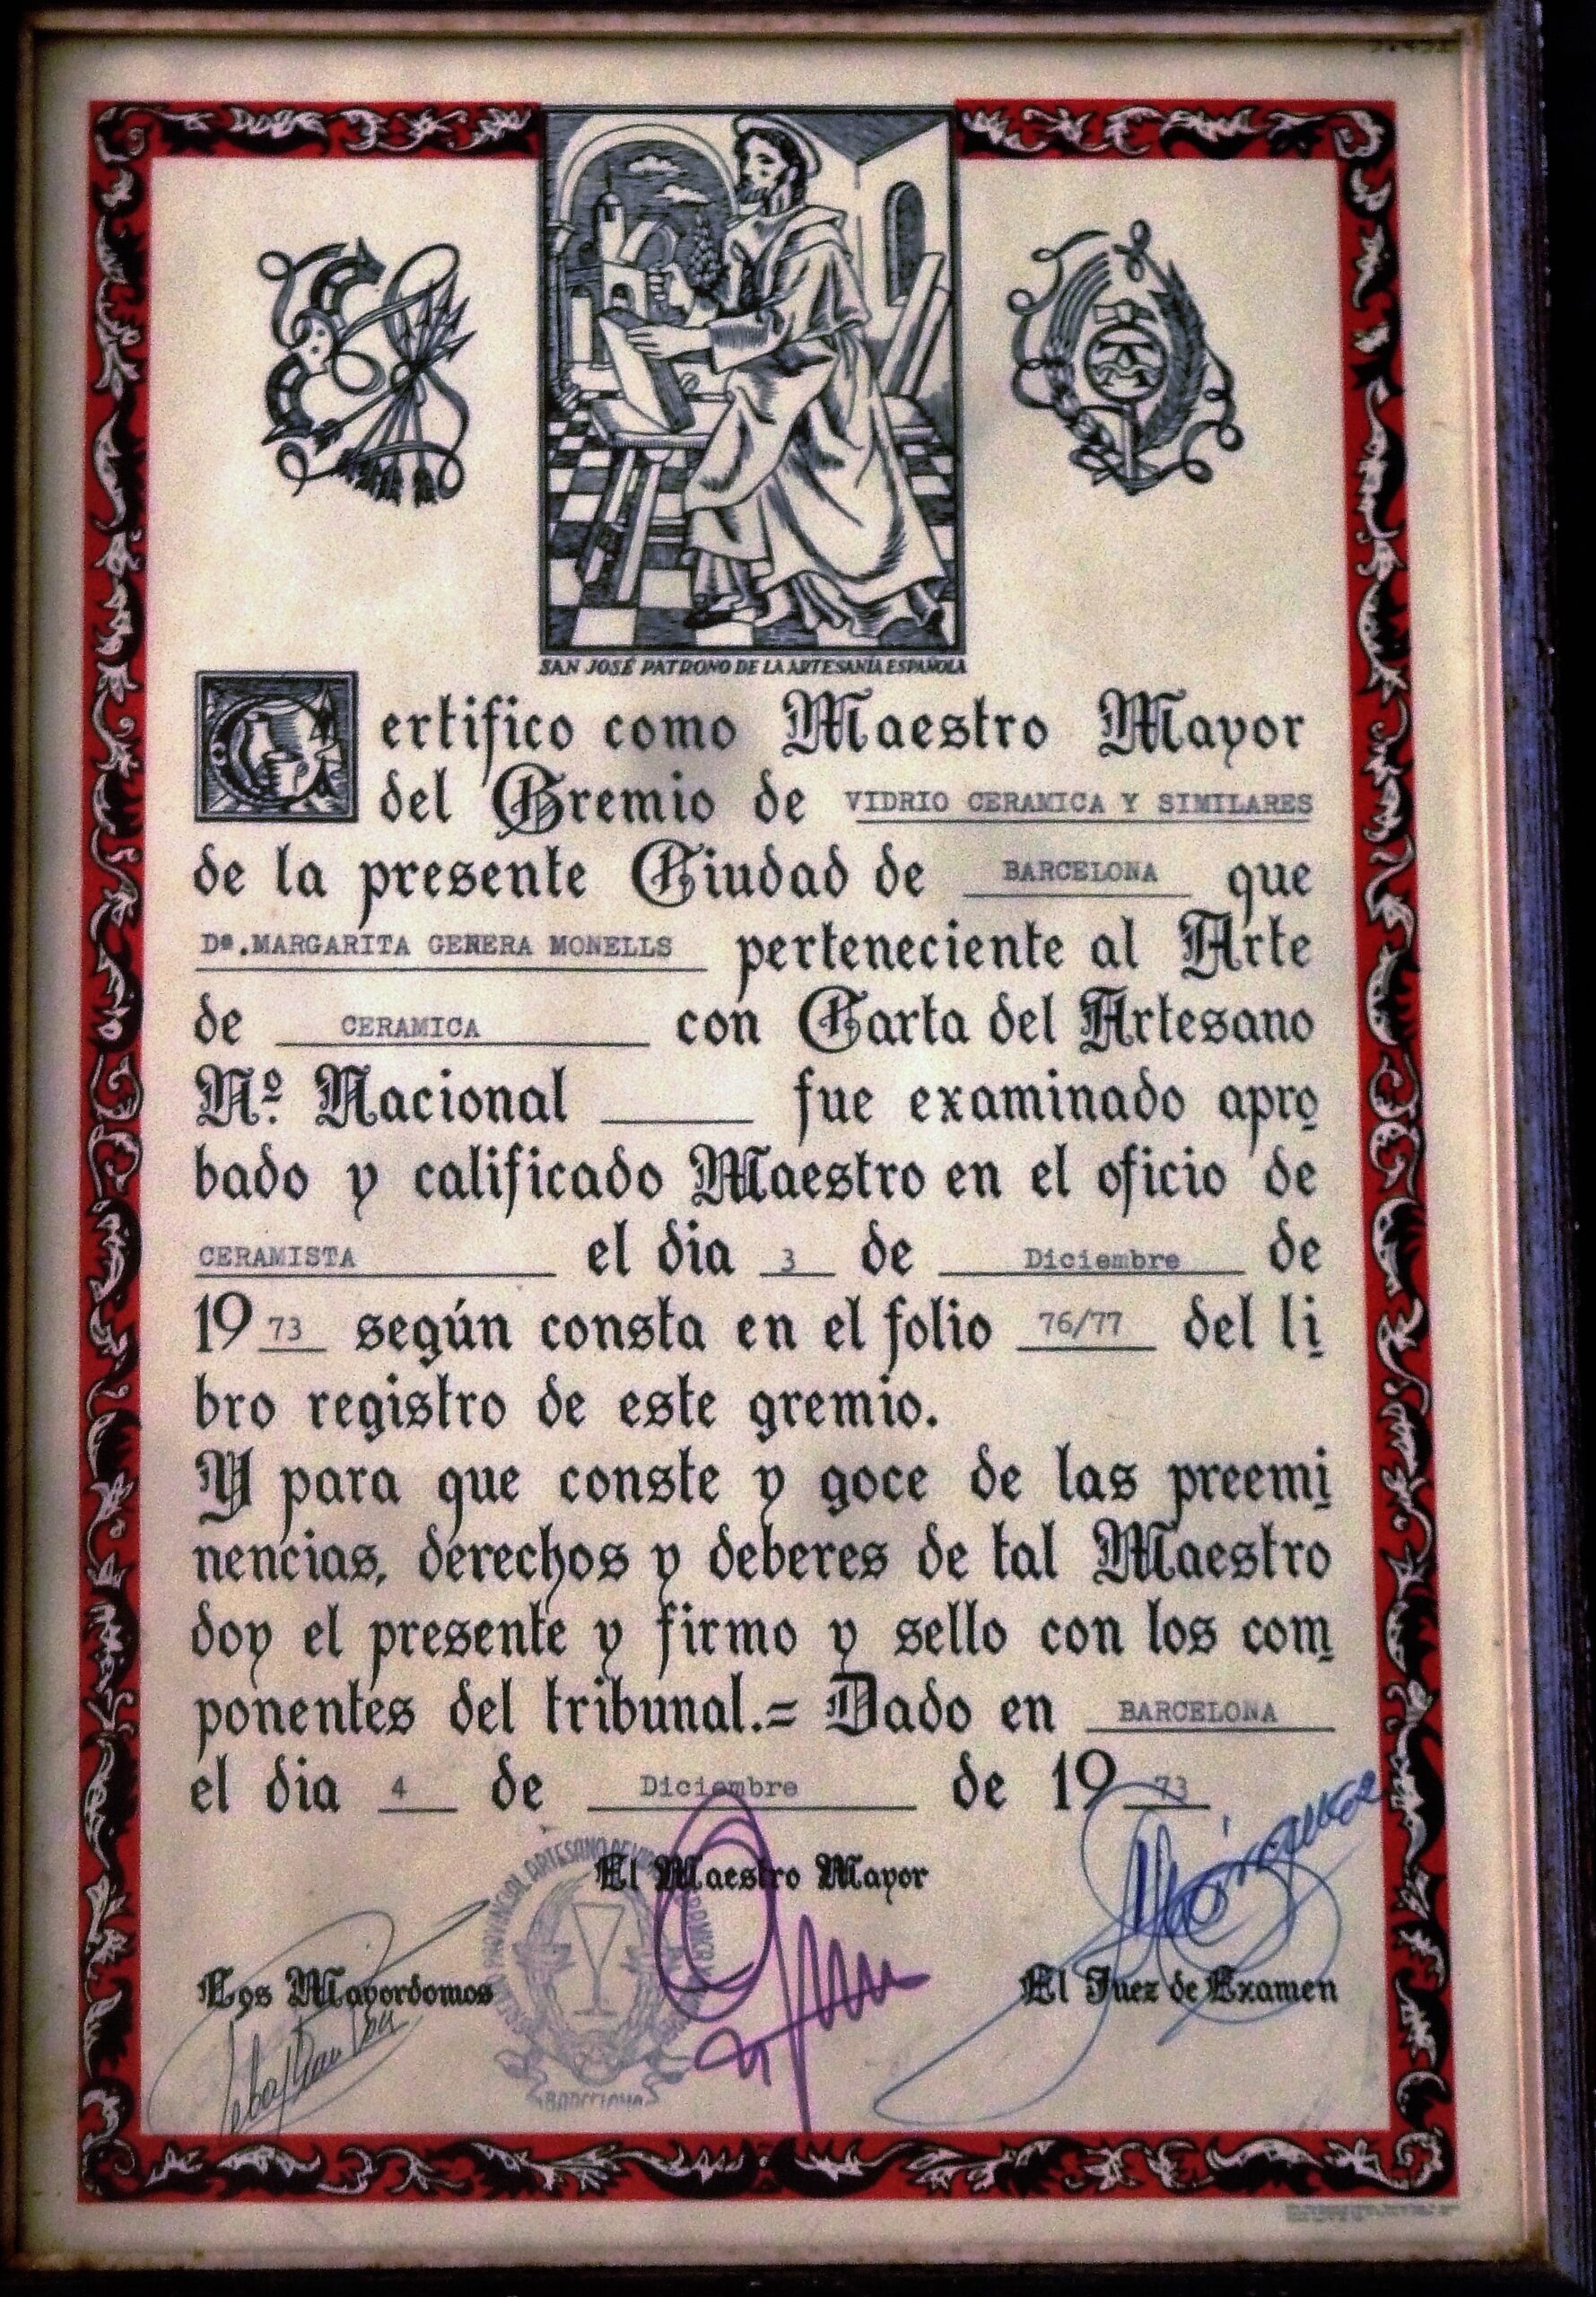 SAN JOSÉ PATRONO DE LA ARTESANÍA ESPAÑOLA
Certifico como Maestro Mayor
del Gremio de VIDRIO CERAMICA Y SIMILARES
de la presente Ciudad de BARCELONA que
Dª.MARGARITA GENERA MONELLS perteneciente al Arte
de CERAMICA con Carta del Artesano
Nº. Nacional fue examinado apro
bado y calificado Maestro en el oficio de
CERAMISTA el dia 3 de Diciembre de
1973 según consta en el folio 76/77 del li
bro registro de este gremio.
Y para que conste y goce de las preemi
nencias, derechos y deberes de tal Maestro
doy el presente y firmo y sello con los com
ponentes del tribunal.= Dado en BARCELONA
el dia 4 de Diciembre de 1973
El Maestro Mayor
Los Mayordomos
El Juez de Examen
BARCELONA